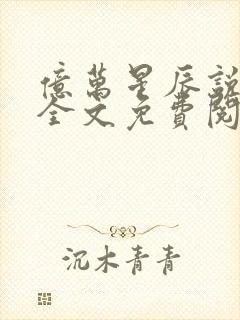 億萬星辰說
全文免費閱
沉木青青